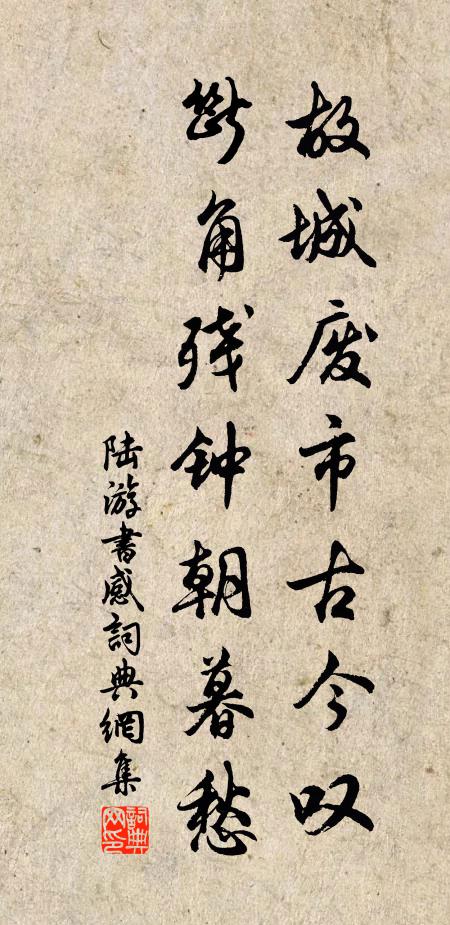 故城废市古今叹
断角残钟朝暮愁
陆游書感詞典網集
詞典网印